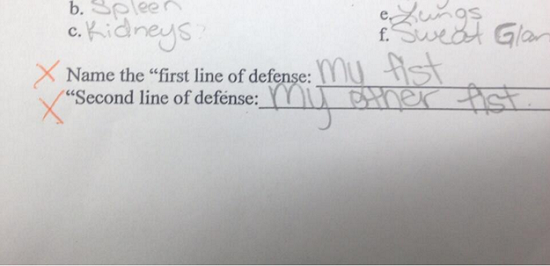 b. Spleen
e. Lungs
c. Kidneys
f. Sweat Glan
Name the “first line of defense: my fist
“Second line of defense: my other fist.